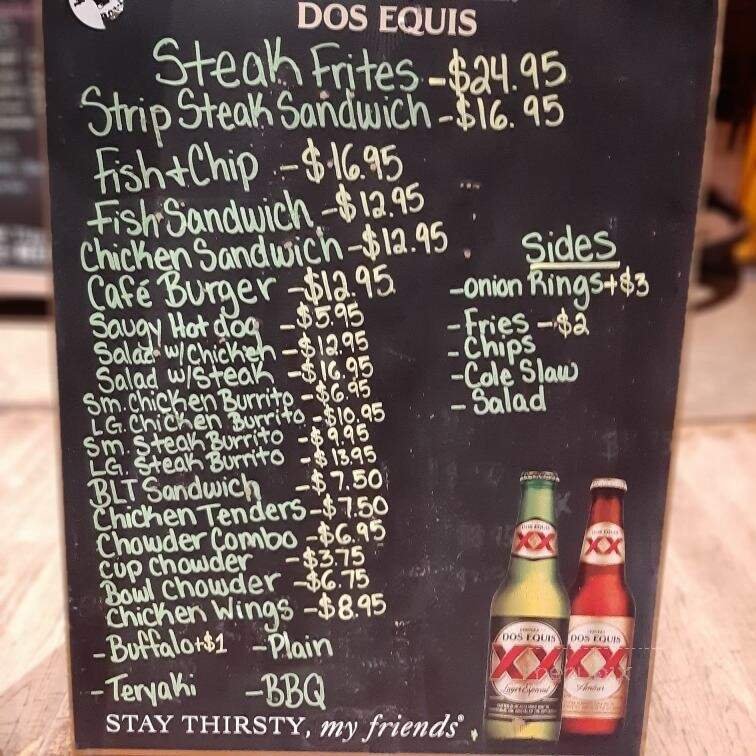 DOS EQUIS
Steak Frites - $24.95
Strip Steak Sandwich - $16.95
Fish + Chip - $16.95
Fish Sandwich - $12.95
Chicken Sandwich - $12.95
Café Burger - $12.95
Saugy Hot dog - $5.95
Salad w/Chicken - $12.95
Salad w/Steak - $16.95
Sm. Chicken Burrito - $6.95
LG. Chicken Burrito - $10.95
Sm. Steak Burrito - $9.95
LG. Steak Burrito - $13.95
BLT Sandwich - $7.50
Chicken Tenders - $7.50
Chowder Combo - $6.95
Cup Chowder - $3.75
Bowl Chowder - $6.75
Chicken Wings - $8.95
- Buffalo +$1 - Plain
- Teryaki - BBQ
Sides
- onion Rings +$3
- Fries - $2
- Chips
- Cole Slaw
- Salad
XX
XX
DOS EQUIS
XX
Lager Especial
DOS EQUIS
XX
Ambar
STAY THIRSTY, my friends®